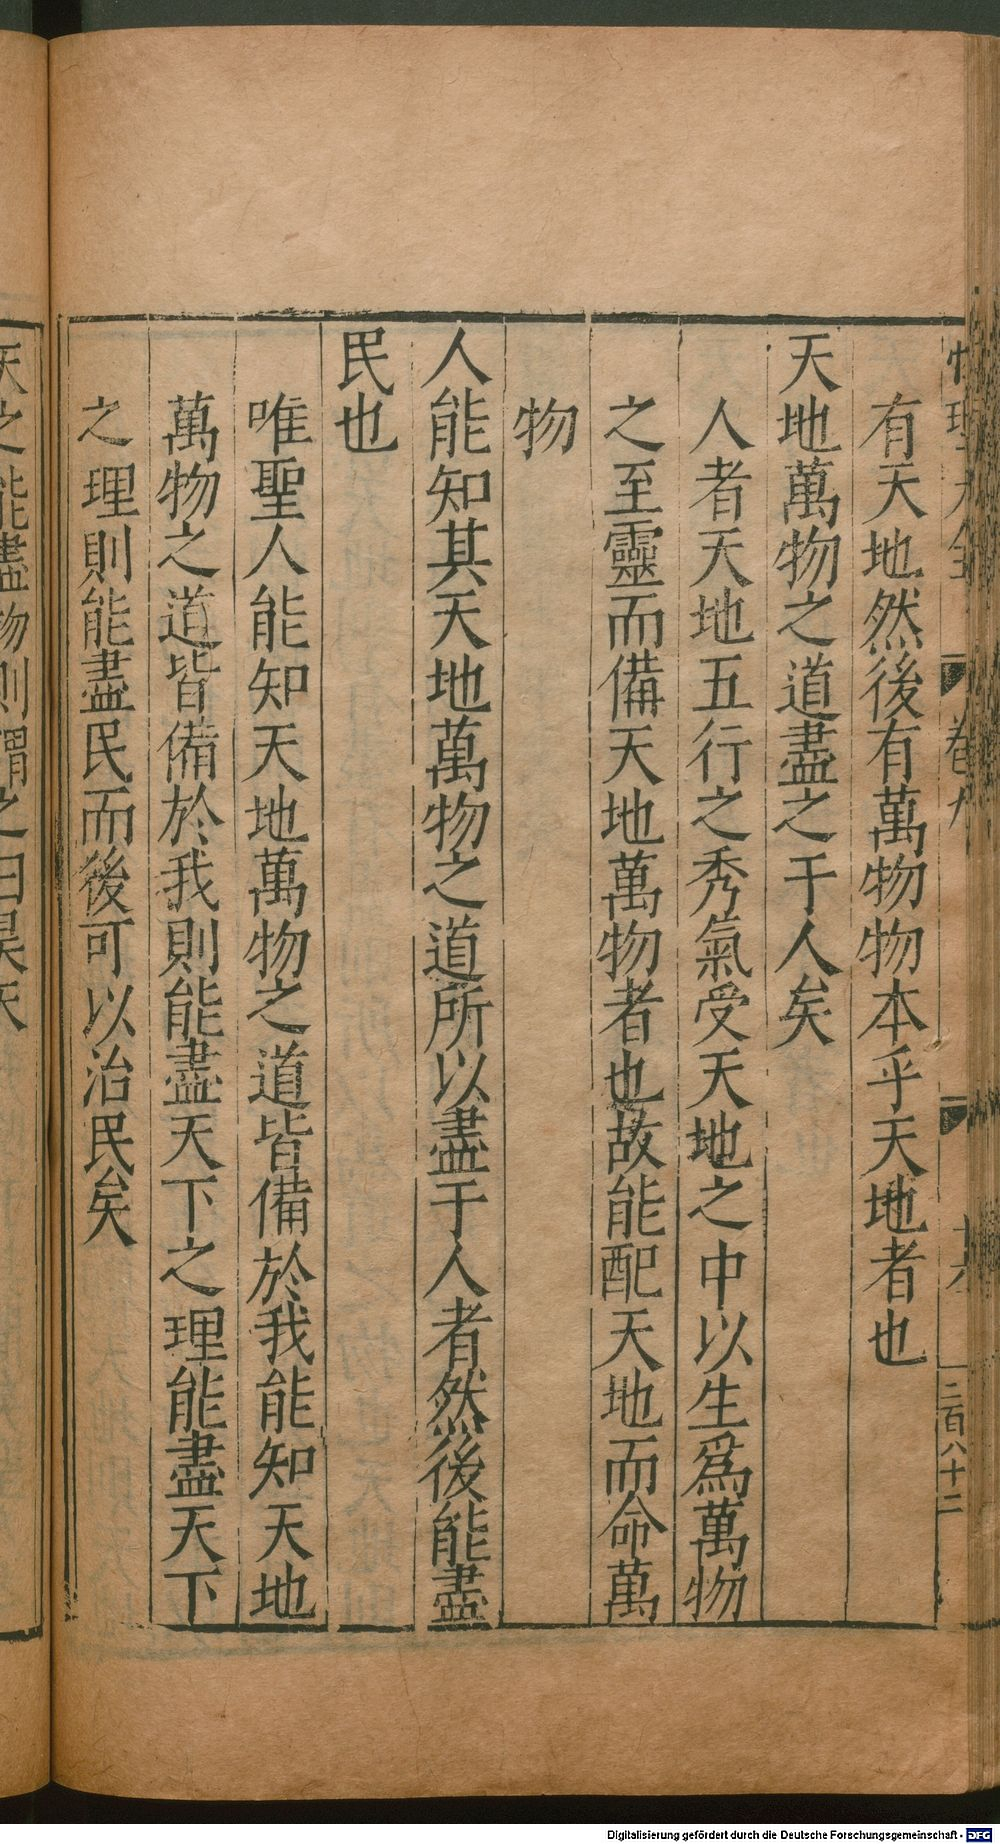 性理大全 卷九 十六 二百八十二
有天地然後有萬物物本乎天地者也
天地萬物之道盡之于人矣
人者天地五行之秀氣受天地之中以生爲萬物
之至靈而備天地萬物者也故能配天地而命萬
物
人能知其天地萬物之道所以盡于人者然後能盡
民也
唯聖人能知天地萬物之道皆備於我能知天地
萬物之道皆備於我則能盡天下之理能盡天下
之理則能盡民而後可以治民矣
天之能盡物則謂之曰昊天
Digitalisierung gefördert durch die Deutsche Forschungsgemeinschaft - DFG